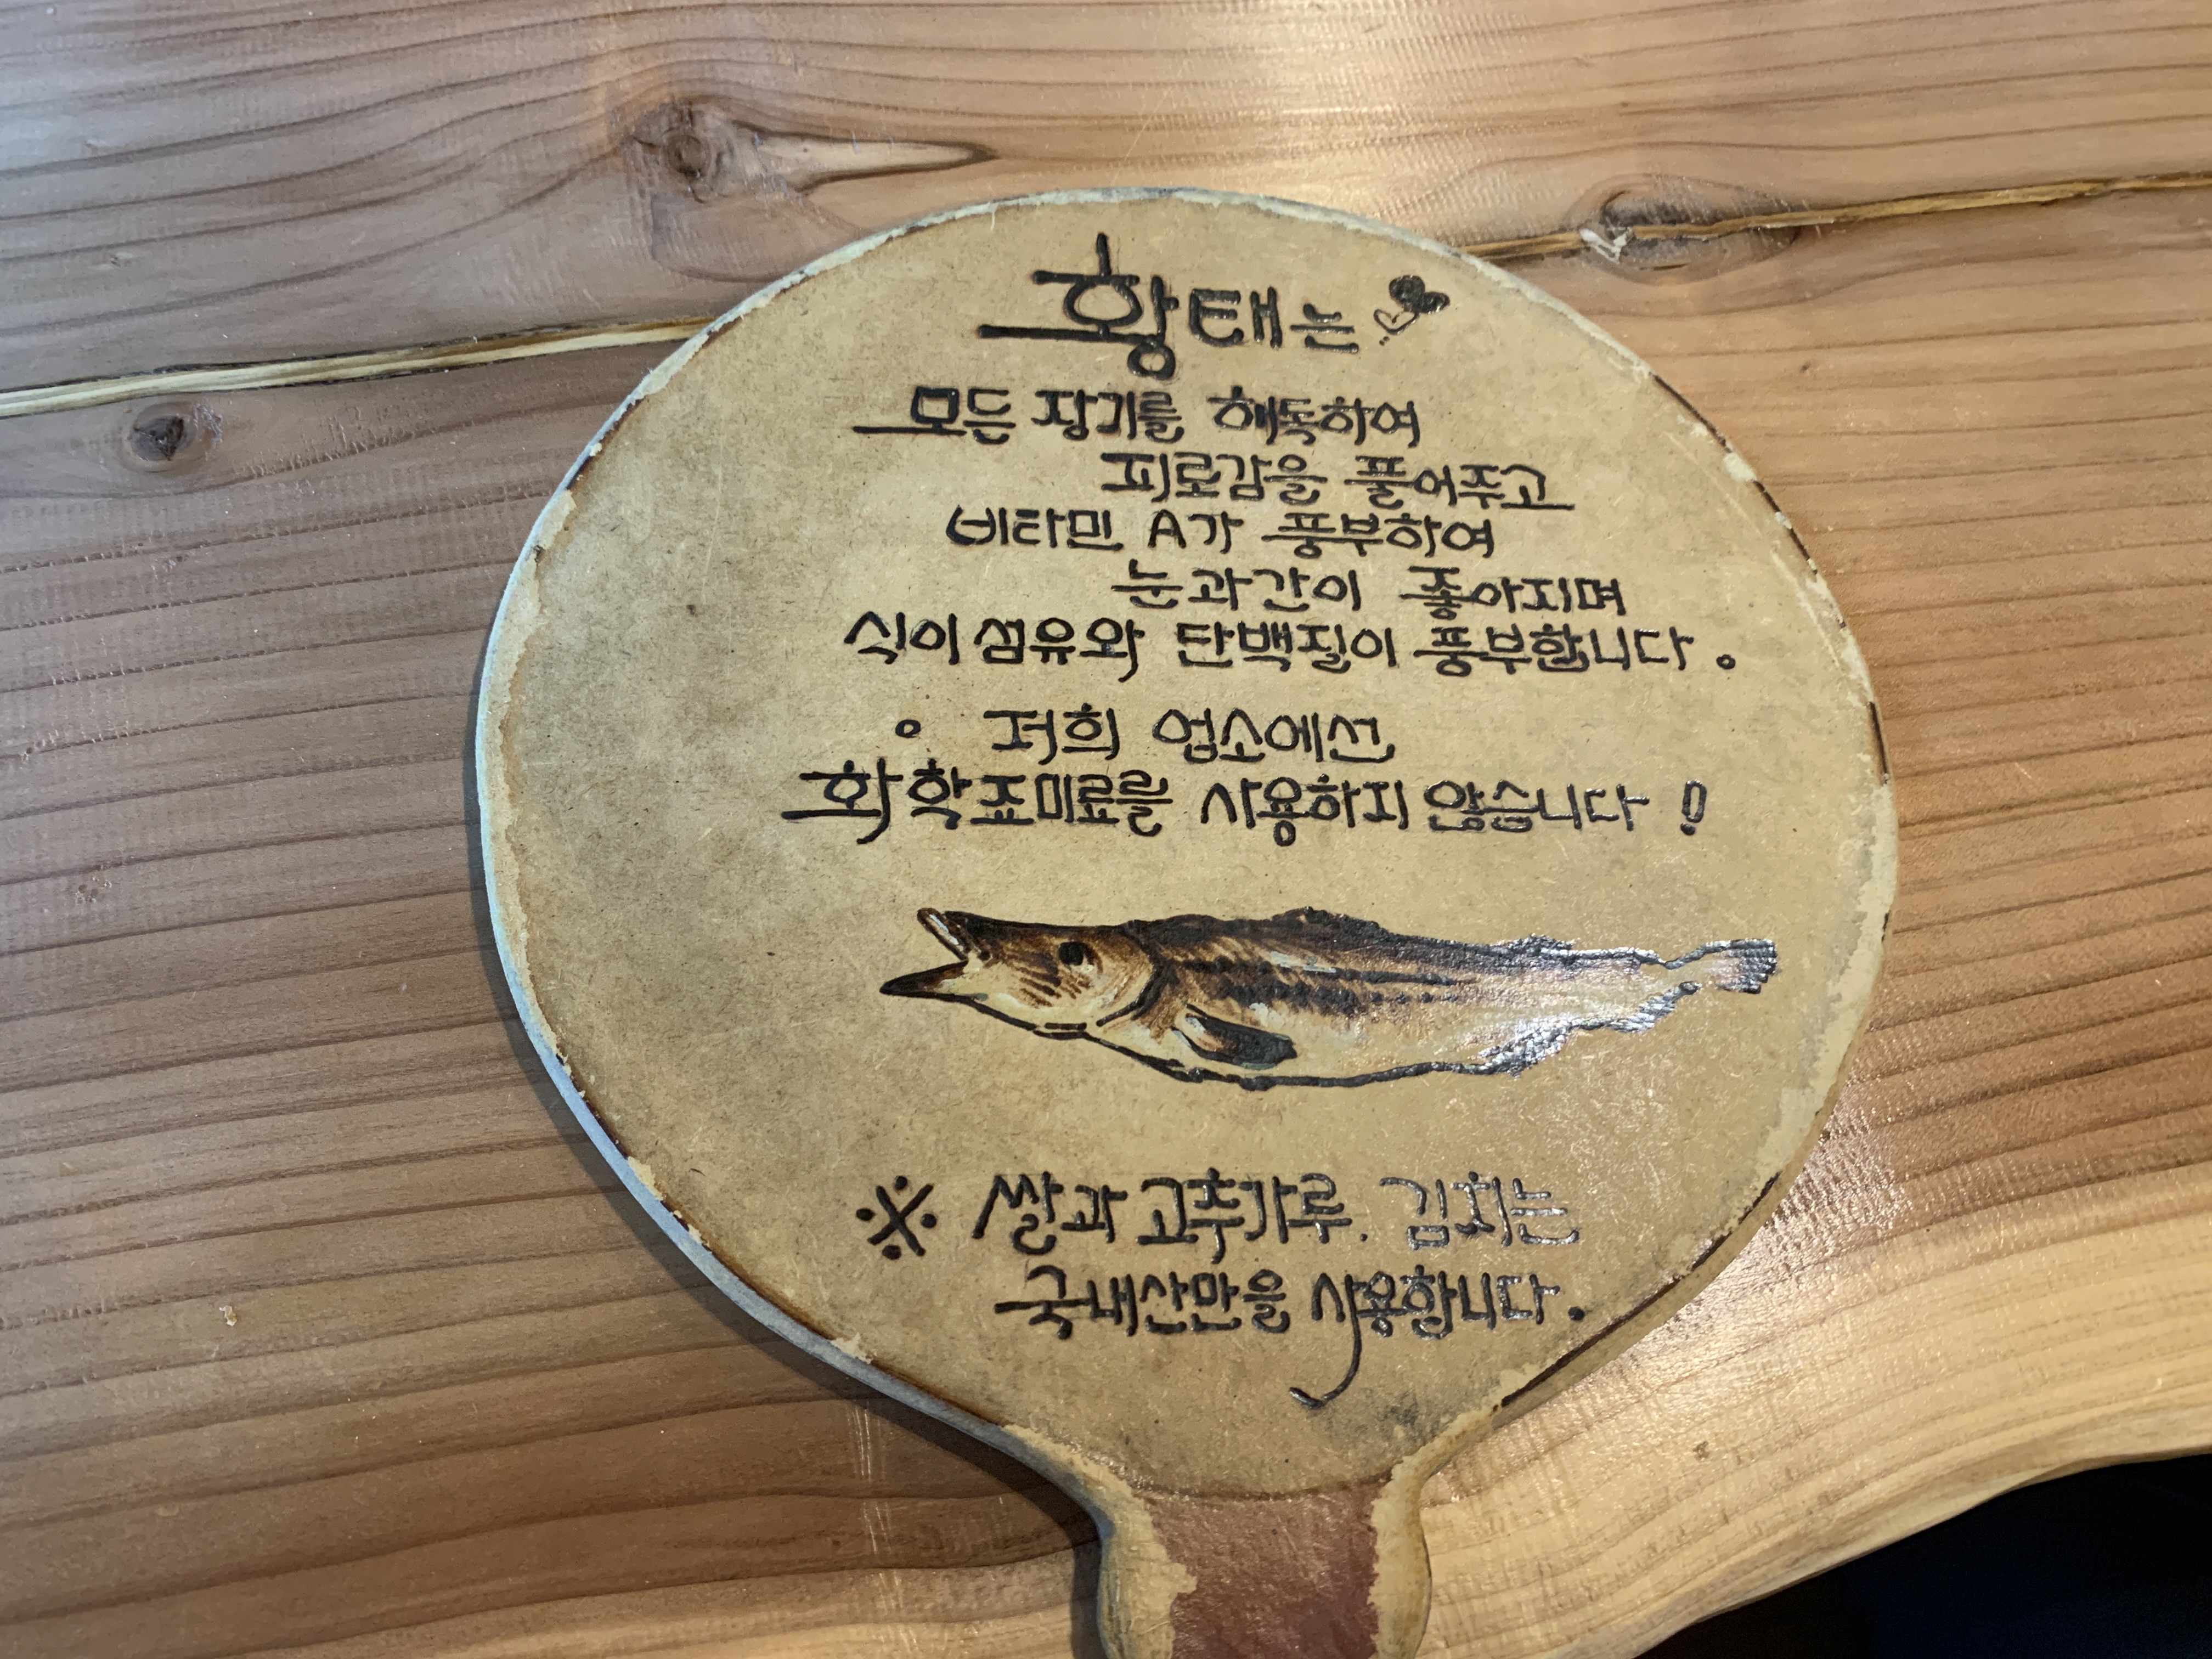 황태는
모든 장기를 해독하여
피로감을 풀어주고
비타민 A가 풍부하여
눈과 간이 좋아지며
식이섬유와 단백질이 풍부합니다.
° 저희 업소에선
화학죠미료를 사용하지 않습니다!
※ 쌀과 고추가루. 김치는
국내산만을 사용합니다.